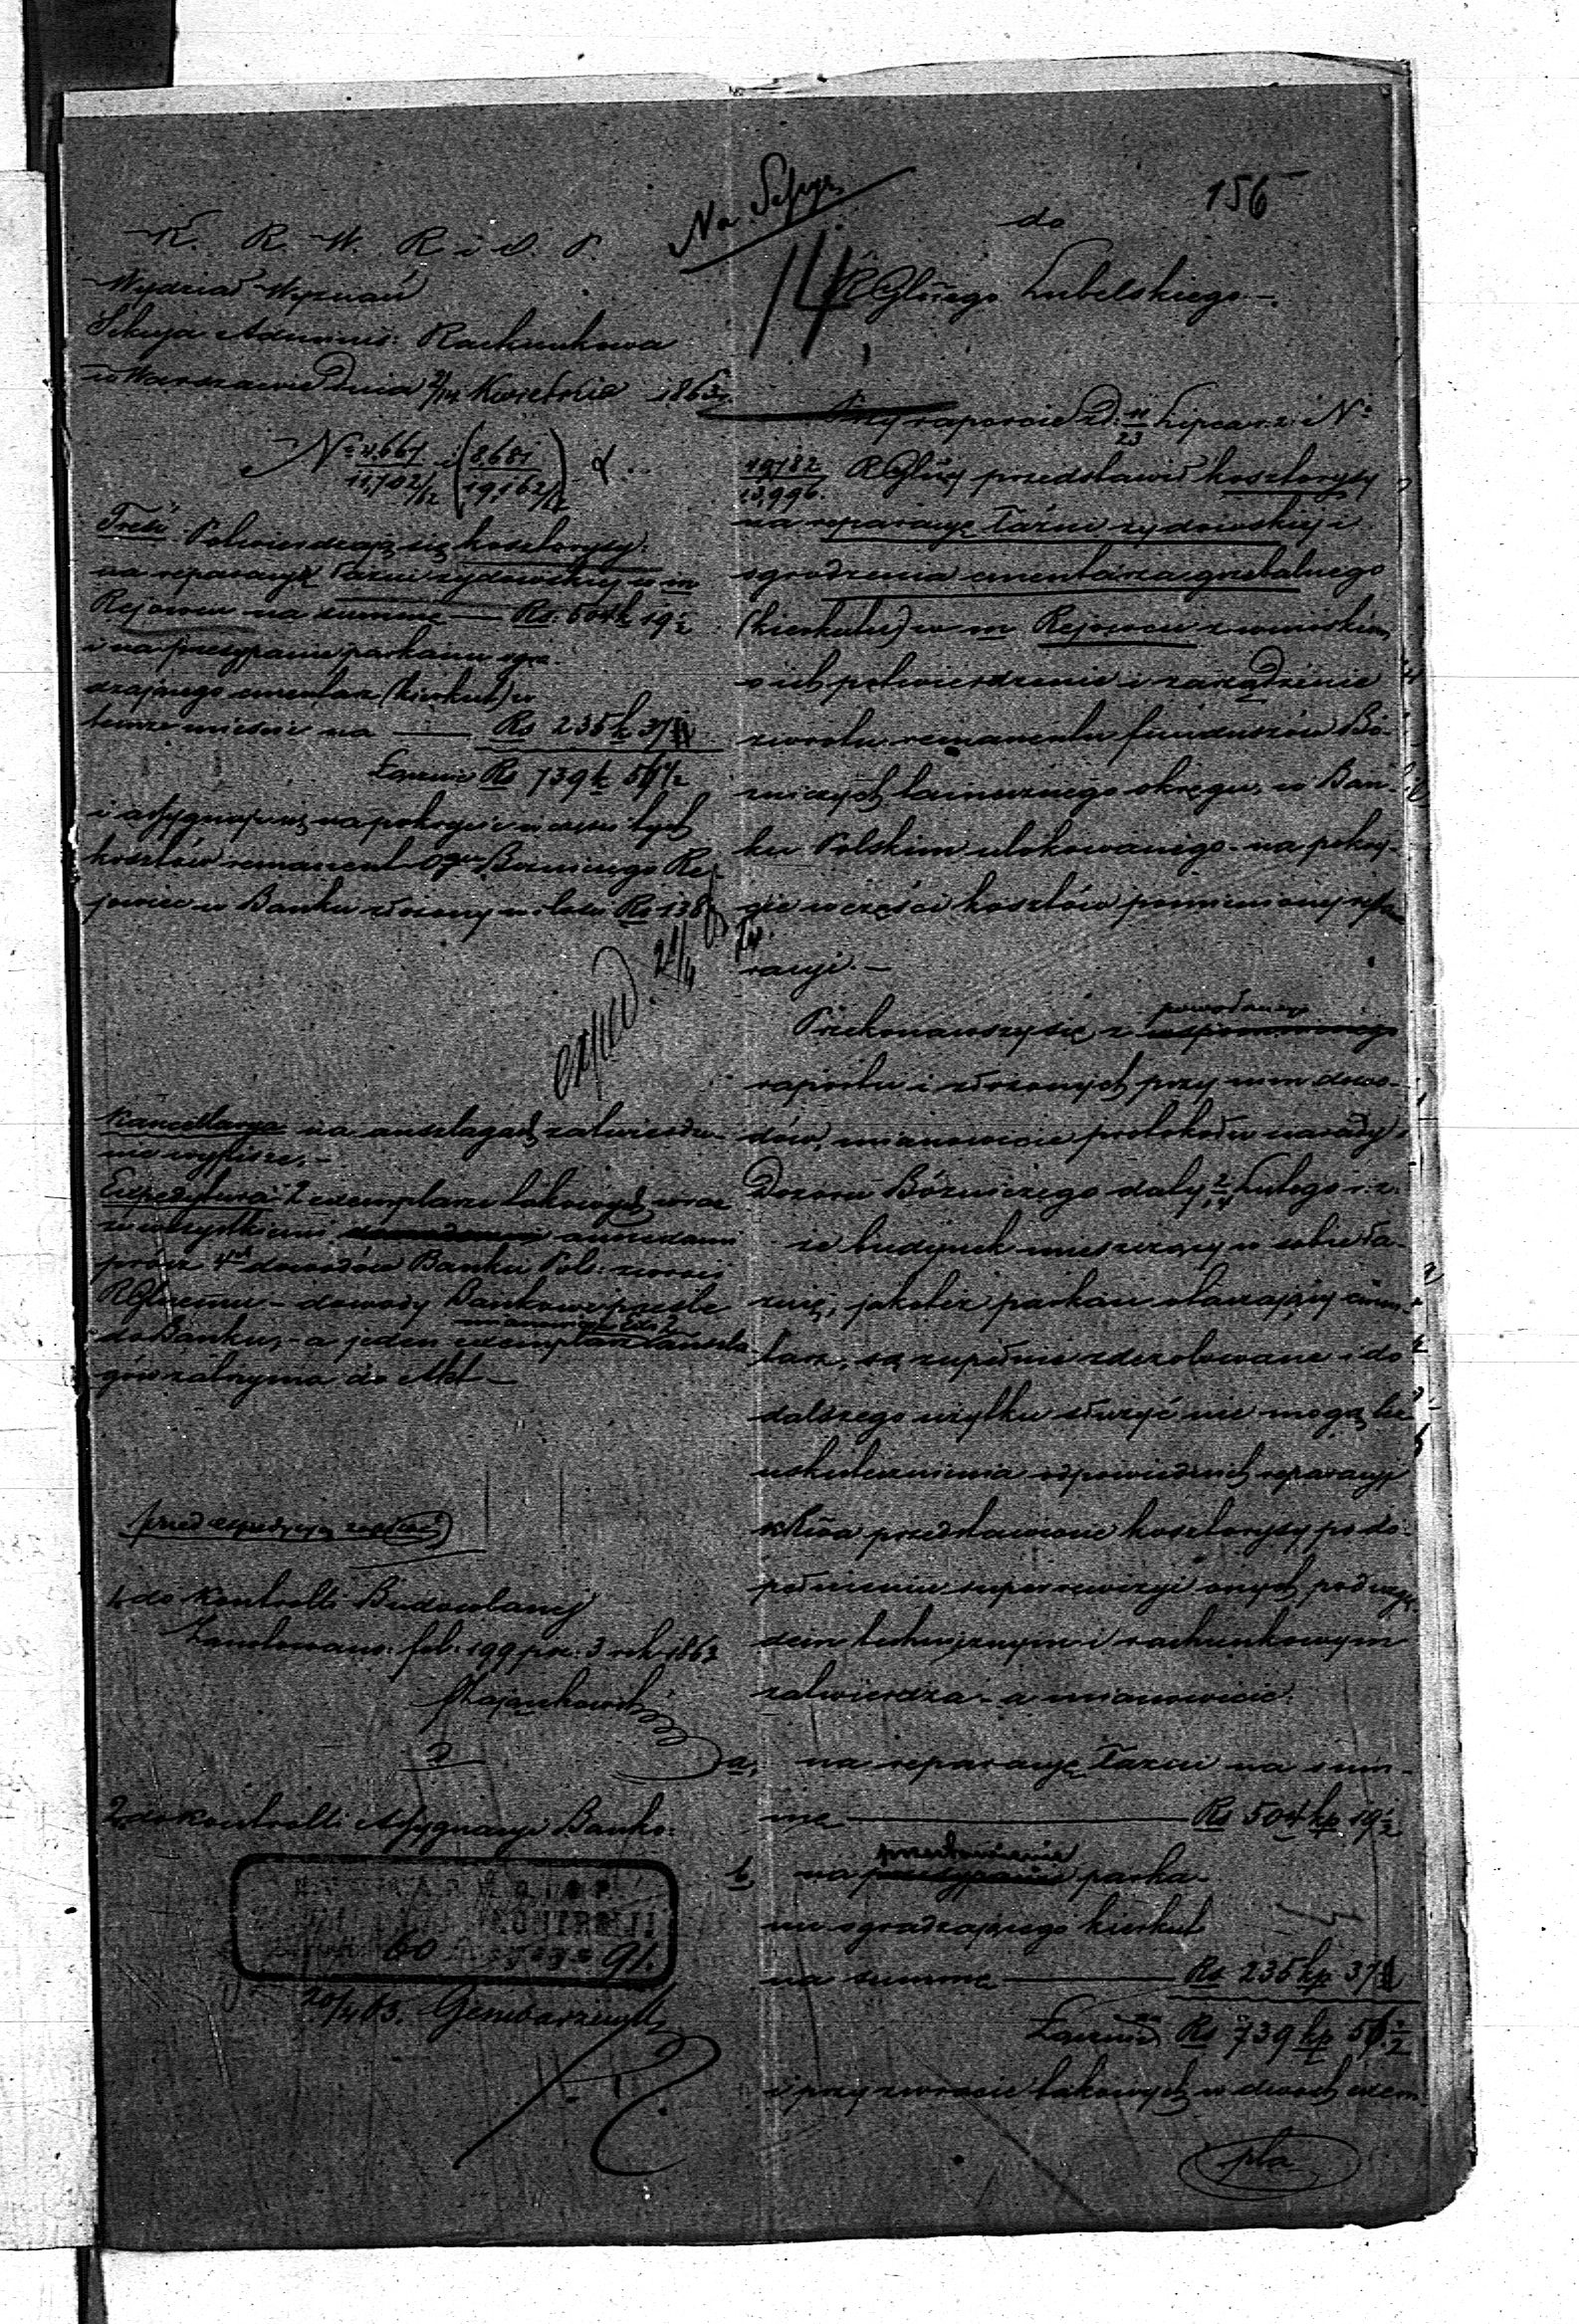 156
K. R. W. R. i O. P.
Wydział Wyznań
Sekcya Adminis: Rachunkowa
w Warszawie Dnia 2/14 Kwietnia 1863 r.
11,702/62 19,162/62
Treść. Potwierdzają się kosztorysy:
na reparacyę Łaźni żydowskiej w m
Rejowcu na summę — Rs: 504 k 19½
i na przesypanie parkanu ogra-
dzającego cmentarz (kierkut) w
temże mieście na — Rs 235 k 37
Łącznie Rs 739 k 56½
i assygnuje się na pokrycie w części tych
kosztów remanent Ogu Bożniczego Re-
jowiec w Banku złożony w ilości Rs 138
exped. 21/4 63
Kancellarya na anszlagach zatwierdze-
nie wypisze. –
Expedytura 2 exemplarze takowych wraz
ze wszystkiemi annexami
prócz dowodów Banku Pol: zwróci
RGłnemu – dowody Bankowe prześle
do Banku, – a jeden exemplarz anszla-
gów zatrzyma do Akt —
przed expedycyą
1, do Kontrolli Budowlanej
Zanotowano: fol: 199 poz: 3 rok 1863
2, do Kontrolli Assygnacyi Banko:
60 91.
20/4 63.
do
R Głnego Lubelskiego –
14
Przy raporcie z d. 11/23 Lipca r. z. No
19182/10,996. RGłny przedstawił kosztorysy
na reparacyę Łaźni żydowskiej i
ogrodzenia cmentarza grzebalnego
(kierkutu) w m Rejowcu z wnioskiem
o ich potwierdzenie i zarządzenie
zwrotu remanentu funduszów Bó-
żniczych tamecznego okręgu, w Ban-
ku Polskim ulokowanego – na pokry-
cie w części kosztów pomienionej repa-
racyi. —
powołanego
Przekonawszy się z wspomnionego
raportu i złożonych przy nim dowo-
dów, mianowicie protokołu narady
Dozoru Bóżniczego daty 2/14 Lutego r. z.
że budynek mieszczący w sobie ła-
źnię, jakoteż parkan otaczający cmen-
tarz, są zupełnie zdezolowane i do
dalszego użytku służyć nie mogą bez
uskutecznienia odpowiednich reparacyj
przedstawione kosztorysy po do-
pełnieniu superrewizyi onych pod wzglę-
dem technicznym i rachunkowym
zatwierdza – a mianowicie:
a, na reparacyę Łaźni na sum-
mę — Rs 504 kp 19½
przestawienie
b, na przesypanie parka-
nu ogradzającego kierkut
na summę — Rs 235 kp 37
Łącznie Rs 739 kp 56½
i przy zwrocie takowych w dwóch exem-
pla